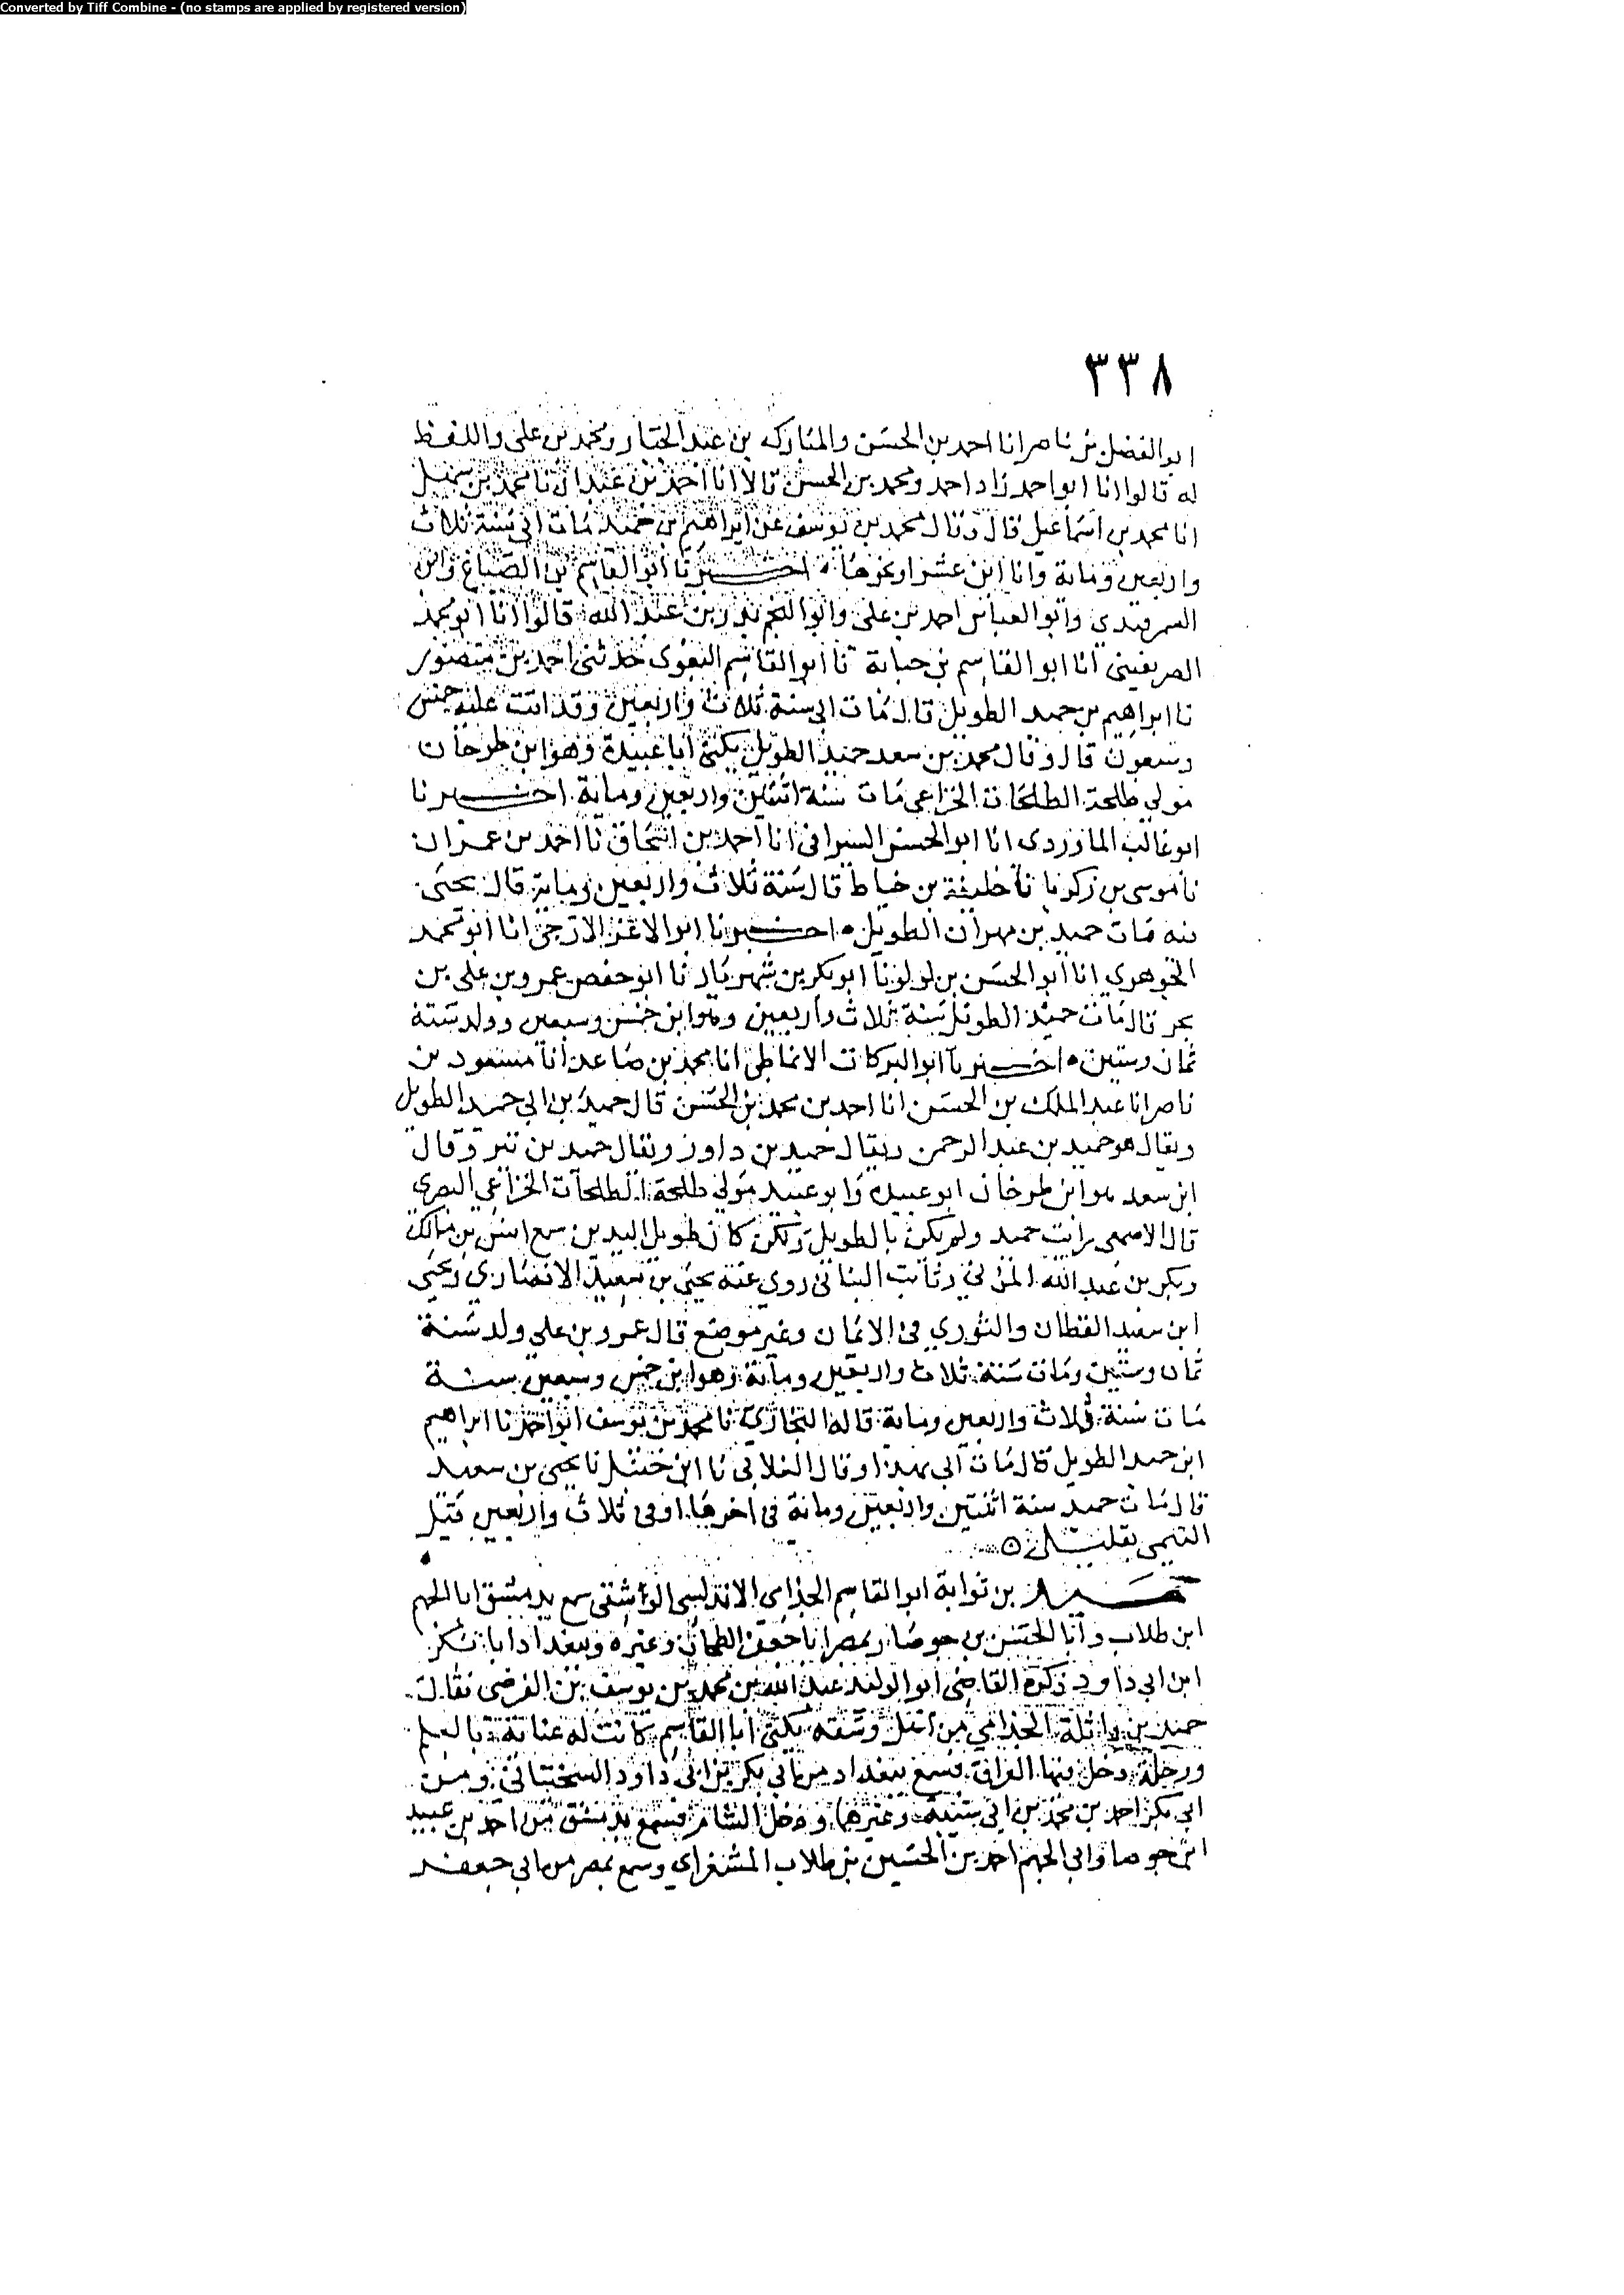 Converted by Tiff Combine - (no stamps are applied by registered version)
٣٣٨
ابو الفضل بن ناصر انا احمد بن الحسن والمبارك بن عبد الجبار ومحمد بن على واللفظ
له قالوا انا ابو احمد زاد احمد ومحمد بن الحسن قالا انا احمد بن عبدان نا محمد بن سهل
انا محمد بن اسماعيل قال وقال محمد بن يوسف عن ابراهيم بن حميد مات ابى سنة ثلاث
واربعين وماية وانا ابن عشر او نحوها اخبرنا ابو القاسم بن الصباغ وابن
السمرقندي وابو العباس احمد بن على وابو النجم بدر بن عبد الله قالوا انا ابو محمد
الصريفينى انا ابو القاسم بن حبابة نا ابو القاسم البغوى حدثنى احمد بن منصور
نا ابراهيم بن حميد الطويل قال مات ابى سنة ثلاث واربعين وقد اتت عليه خمس
وسبعون قال وقال محمد بن سعد حميد الطويل يكنى ابا عبيدة وهو ابن طرخان
مولى طلحة الطلحات الخزاعى مات سنة اثنتين واربعين وماية اخبرنا
ابو غالب الماوردى انا ابو الحسن السيرافى انا احمد بن اسحاق نا احمد بن عمران
نا موسى بن زكريا نا خليفة بن خياط قال سنة ثلاث واربعين وماية قال يحيى
فيه مات حميد بن مهران الطويل اخبرنا ابو الاعز الازجى انا ابو محمد
الجوهري انا ابو الحسن بن لولو نا ابو بكر بن شهريار نا ابو حفص عمرو بن على بن
بحر قال مات حميد الطويل سنة ثلاث واربعين وهو ابن خمس وسبعين وولد سنة
ثمان وستين اخبرنا ابو البركات الانماطى انا محمد بن طاهر انا مسعود بن
ناصر انا عبد الملك بن الحسن انا احمد بن محمد بن الحسن قال حميد بن ابي حميد الطويل
ويقال هو حميد بن عبد الرحمن ويقال حميد بن داور ويقال حميد بن تير وقال
ابن سعد هو ابن طرخان ابو عبيدة وابو عبيد مولى طلحة الطلحات الخزاعي البصري
قال الاصمعى رايت حميد ولم يكن بالطويل ولكن كان طويل اليدين سمع انس بن مالك
وبكر بن عبد الله المزنى وثابت البنانى روى عنه يحيى بن سعيد الانصاري ويحيى
ابن سعيد القطان والثوري فى الايمان وغير موضع قال عمرو بن على ولد سنة
ثمان وستين ومات سنة ثلاث واربعين وماية وهو ابن خمس وسبعين سنة
مات سنة ثلاث واربعين وماية قاله البخاري نا محمد بن يوسف ابو احمد نا ابراهيم
ابن حميد الطويل قال مات ابى بهذا وقال الغلابى نا ابن حنبل نا يحيى بن سعيد
قال مات حميد سنة اثنتين واربعين وماية فى اخرها او فى ثلاث واربعين قبل
التيمى بقليل
حميد بن ثوابة ابو القاسم الجذامى الاندلسى الوشقى سمع بدمشق ابا الجهم
ابن طلاب وابا الحسن بن جوصا وبمصر ابا جعفر الطحان وغيره وببغداد ابا بكر
ابن ابى داود ذكره القاضى ابو الوليد عبد الله بن محمد بن يوسف بن الفرضى فقال
حميد بن ثوابة الجذامي من اهل وشقه يكنى ابا القاسم كانت له عناية بالعلم
ورحلة دخل فيها العراق فسمع ببغداد من ابى بكر بن ابى داود السجستانى ومن
ابى بكر احمد بن محمد بن ابى شيبة وغيرهما ودخل الشام فسمع بدمشق من احمد بن عبيد
ابن جوصا وابى الجهم احمد بن الحسين بن طلاب المشغراي وسمع بمصر من ابي جعفر